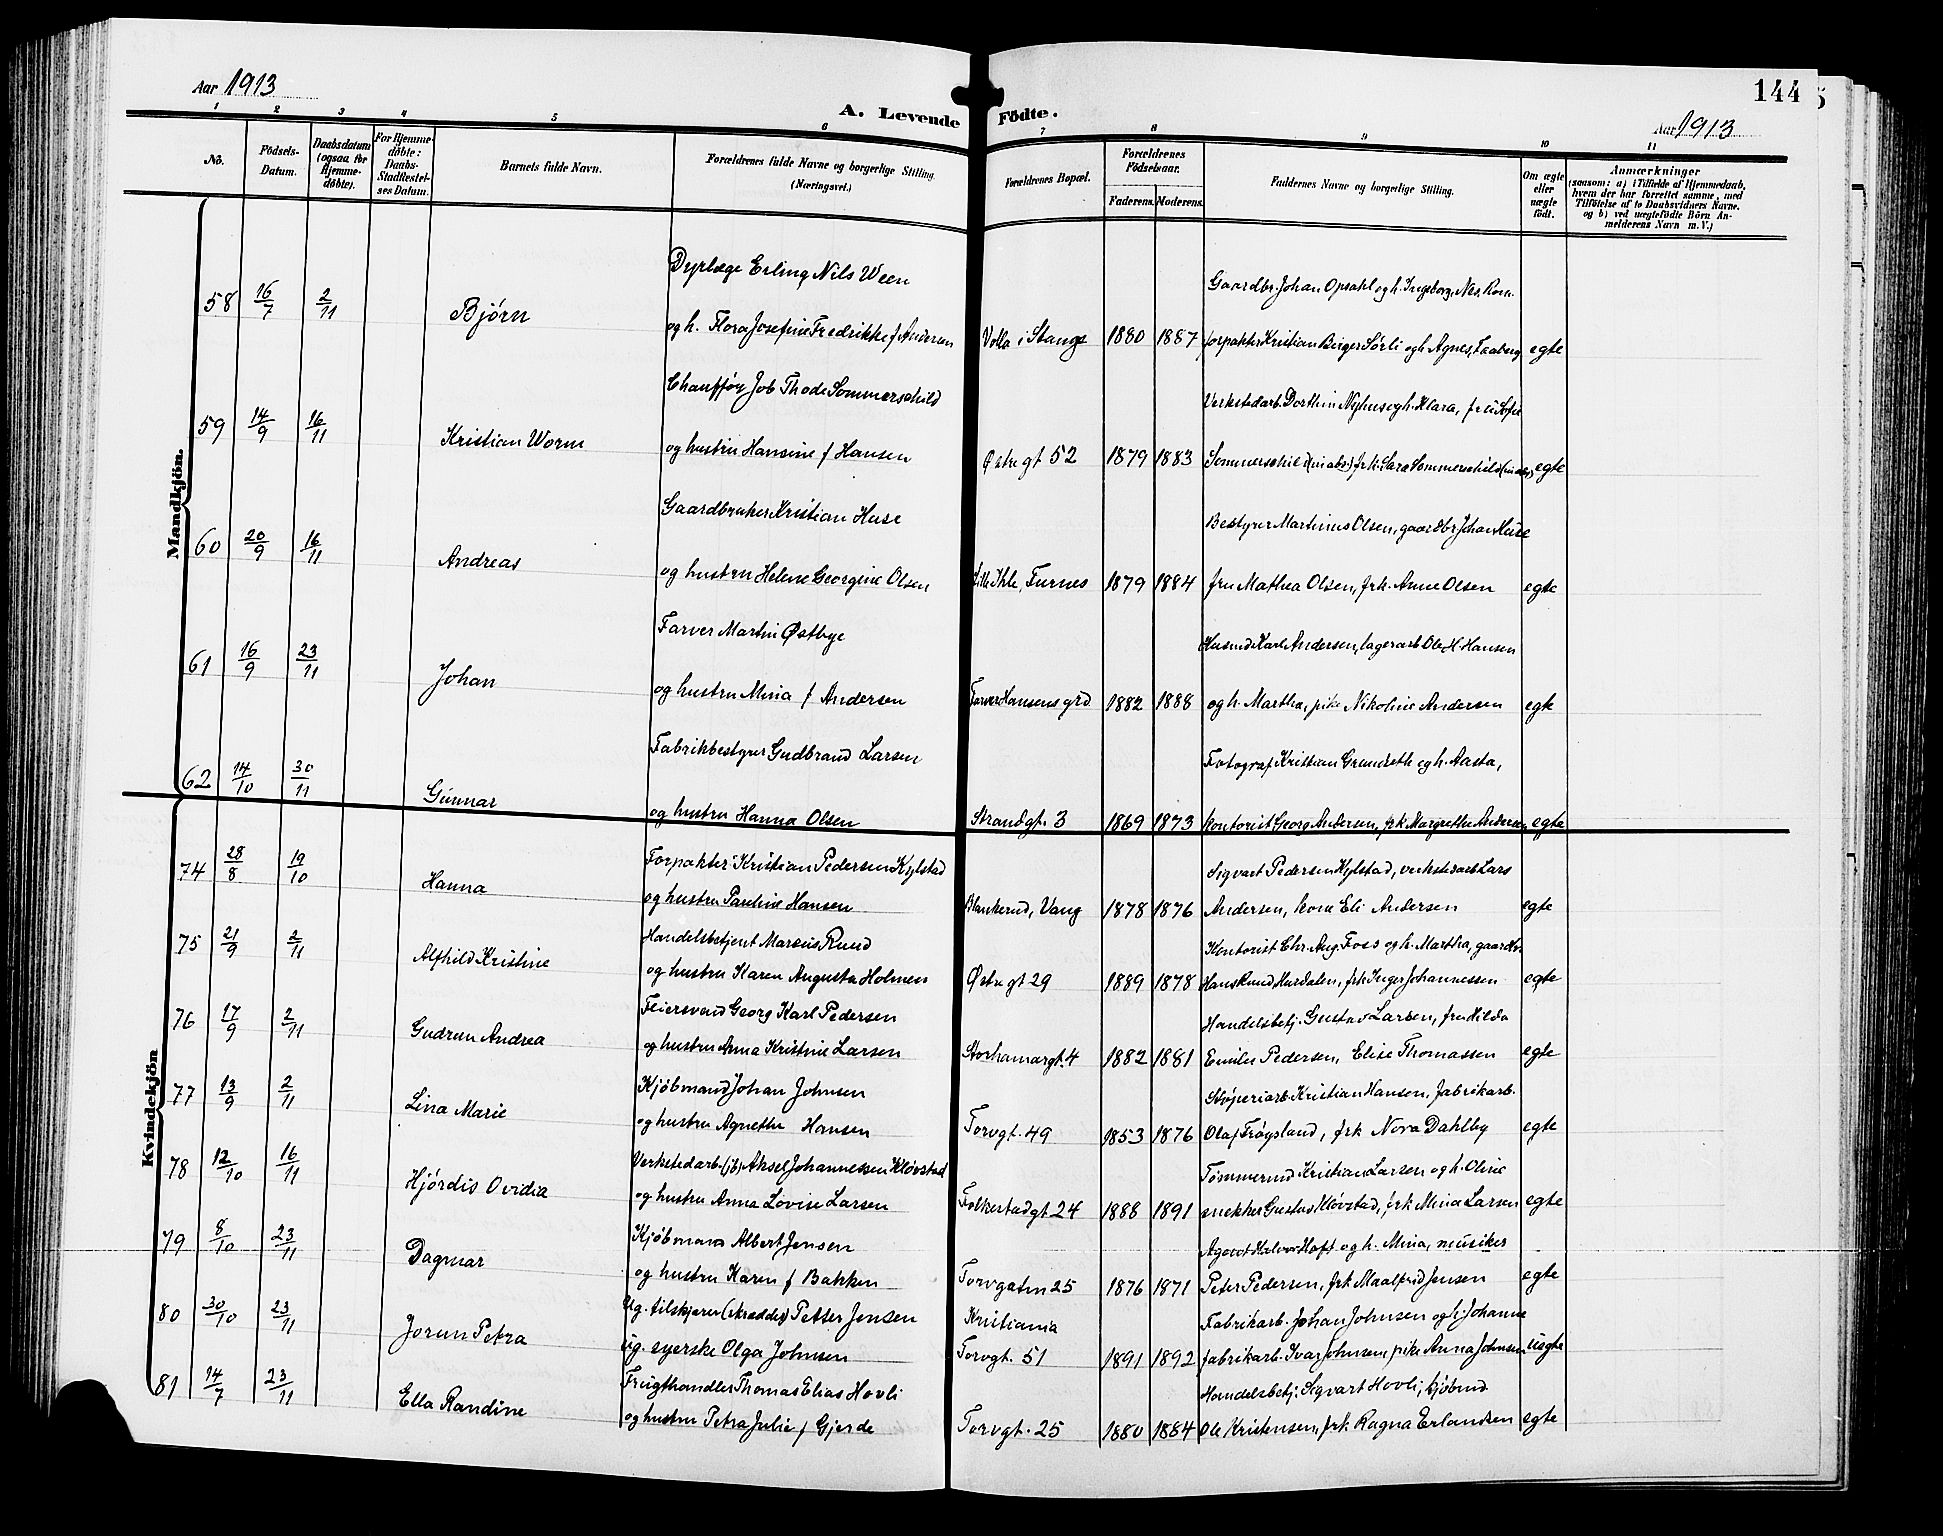 Aar 1913
A. Levende Födte.
144
Aar 1913
1 2 3 4 5 6 7 8 9 10 11
No. Födsels-Datum. Daabsdatum (ogsaa for Hjemme-döbte). For Hjemme-döbte: Daabs-Stadfæstel-ses Datum. Barnets fulde Navn. Forældrenes fulde Navne og borgerlige Stilling. (Næringsvei.) Forældrenes Bopæl. Forældrenes Födselsaar. Faderens. Moderens. Faddernes Navne og borgerlige Stilling. Om ægte eller uægte födt. Anmærkninger (saasom: a) i Tilfælde af Hjemmedaab, hvem der har forrettet samme, med Tilföielse af to Daabsvidners Navne, og b) ved uægtefödte Börn An-melderens Navn m. V.)
Mandkjön.
Dyrlæge Erling Nils Ween Gaardbr. Johan Opsahl og h. Ingeborg, Nes, Rom.
58 16/7 2/11 Bjørn og h. Flora Josefine Fredrikke f Andersen Volla i Stange 1880 1887 forpakter Kristian Birger Sörli og h Agnes, Faaberg egte
Chauffør Job Thode Sommerschild Verkstedarb. Dorthin Nyhus og h. Klara, fru Sofie
59 14/9 16/11 Kristian Worm og hustru Hansine f Hansen Østregt 52 1879 1883 Sommerschild (in abs.) frk. Sara Sommerschild (in abs) egte
Gaardbruker Kristian Huse Bestyrer Martinus Olsen, gaardbr Johan Huse
60 20/9 16/11 Andreas og hustru Helene Georgine Olsen Lille Ihle, Furnes 1879 1884 fru Mathea Olsen, frk. Anne Olsen egte
Farver Martin Østbye Husmd Karl Andersen, lagerarb Ole H. Hansen
61 16/9 23/11 Johan og hustru Mina f Andersen Farver Hansens grd 1882 1888 og h. Martha, pike Nikoline Andersen egte
Fabrikbestyrer Gudbrand Larsen Fotograf Kristian Grundseth og h. Aasta,
62 14/10 30/11 Gunnar og hustru Hanna Olsen Strandgt. 3 1869 1873 kontorist Georg Andersen, frk. Margrethe Andersen egte
Kvindekjön
Forpakter Kristian Pedersen Kylstad Sigvart Pedersen Kylstad, verkstedarb Lars
74 28/8 19/10 Hanna og hustru Pauline Hansen Blankerud, Vang 1878 1876 Andersen, kone Eli Andersen egte
Handelsbetjent Marius Ruud Kontorist Chr. Aug. Foss og h. Martha, gaardbr.
75 21/9 2/11 Alfhild Kristine og hustru Karen Augusta Holmen Østregt 29 1889 1878 Hans Ruud Hurdalen, frk Inger Johannessen egte
Feiersvend Georg Karl Pedersen Handelsbetj. Gustav Larsen, fru Hilda
76 17/9 2/11 Gudrun Andrea og hustru Anna Kristine Larsen Storhamargt. 4 1882 1881 Emilie Pedersen, Elise Thomassen egte
Kjøbmand Johan Johnsen Støperiarb. Kristian Hansen, fabrikarb.
77 13/9 2/11 Lina Marie og hustru Agnethe Hansen Torvgt. 49 1853 1876 Olaf Frøysland, frk Nora Dahlby egte
Verkstedarb. (jb) Aksel Johannessen Kløvstad Tømmermd Kristian Larsen og h. Oline
78 12/10 16/11 Hjördis Ovidia og hustru Anna Lovise Larsen Folkestadgt 24 1888 1891 snekker Gustav Kløvstad, frk Mina Larsen egte
Kjøbmann Albert Jensen Agent Halvor Hoft og h. Mina, musiker
79 8/10 23/11 Dagmar og hustru Karen f Bakken Torvgaten 25 1876 1871 Peter Pedersen, frk Maalfrid Jensen egte
Ug. tilskjærer (skrædder) Petter Jensen Kristiania Fabrikarb. Johan Johnsen og h. Johanne
80 30/10 23/11 Jorun Petra ug. syerske Olga Johnsen Torvgt. 51 1891 1892 fabrikarb. Ivar Johnsen, pike Anna Johnsen uegte
Frugthandler Thomas Elias Hovli Handelsbetj. Sigvart Hovli, kjøbmd
81 14/7 23/11 Ella Randine og hustru Petra Julie f Gjerde Torvgt. 25 1880 1884 Ole Kristensen, frk Ragna Erlandsen egte